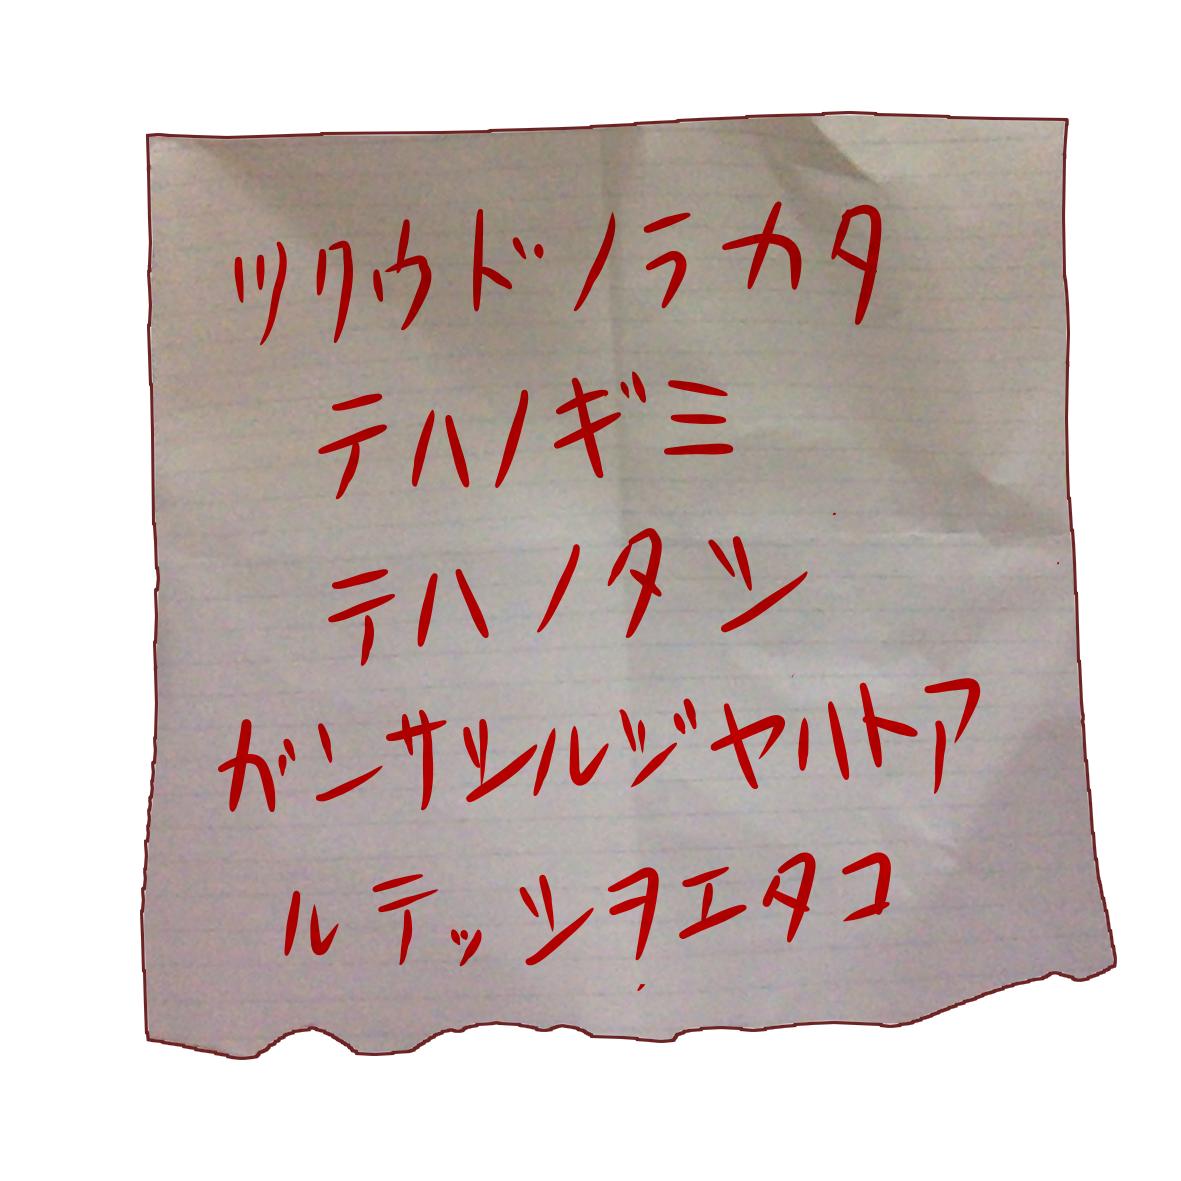 ツクウドノラカタ
テハノギミ
テハノタシ
ガンサシルジヤハトア
ルテッシヲエタコ